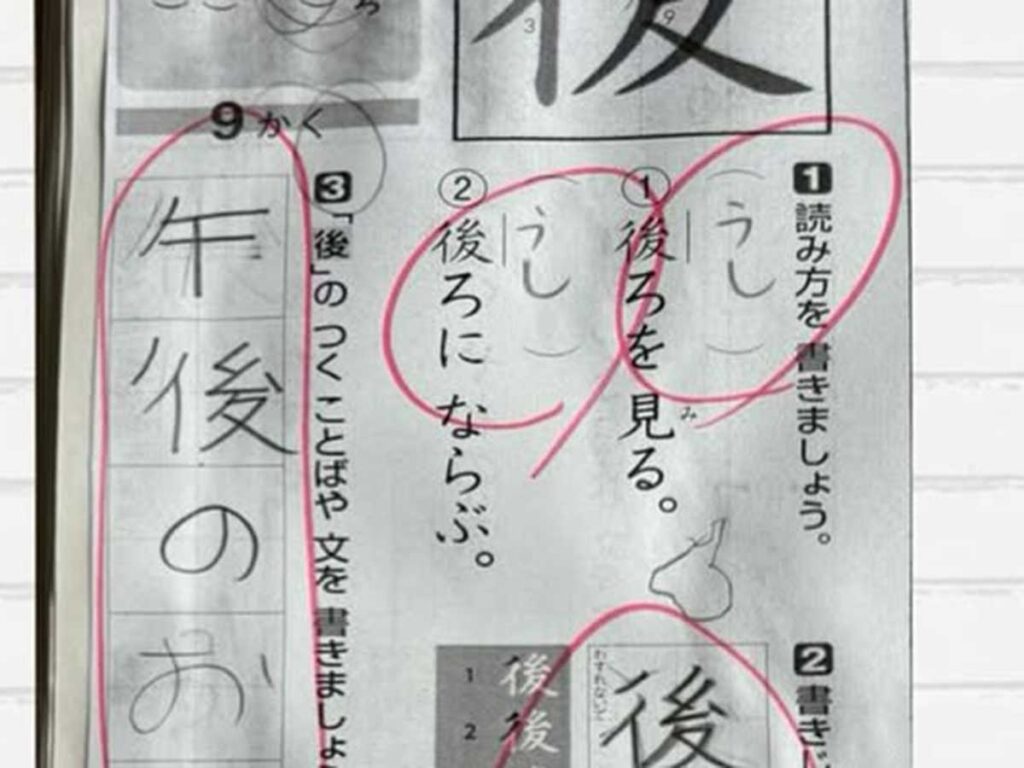 後
1 読み方を 書きましょう。
① 後ろを 見る。
み
うし
② 後ろに ならぶ。
うし
2 書きじ
わすれないで
後
1 後
2 後
9 かく
3 「後」の つく ことばや 文を 書きましょ
午後のお